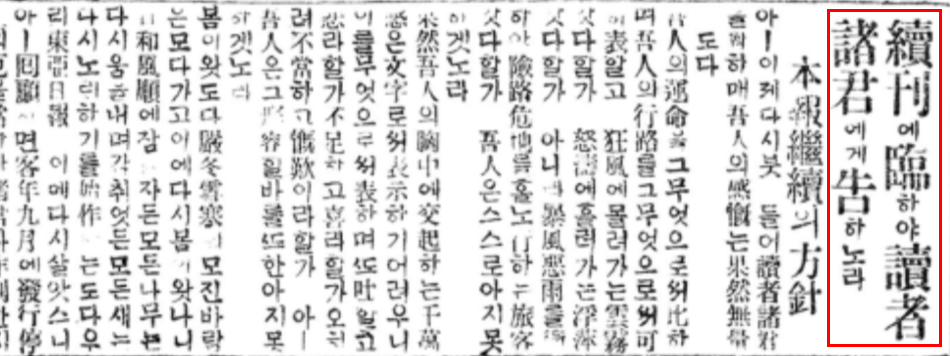 續刊에臨하야讀者
諸君에게告하노라
本報繼續의方針
아ー이제다시붓 들어讀者諸君
하매吾人의感慨는果然無量
도다
吾人의運命을그무엇으로써比하
며吾人의行路를그무엇으로써可
히表할고 狂風에몰려가는雲霧
갓다할가 怒濤에흘려가는浮萍
갓다할가 아니 暴風惡雨를
하야險路危地를홀노行하는旅客
갓다할가 吾人은스스로아지못
하겟노라
果然吾人의胸中에交起하는千萬
感은文字로써表示하기어려우니
이를무엇으로써表하며또吐할고
悲라할가不足하고喜라할가오히
려不當하고慨歎이라할가 아ー
吾人은그形容할바를또한아지못
하겟노라
봄이왓도다嚴冬雪寒 모진바람
은모다가고이에다시봄 왓나니
和風願에잠 자든모든나무는
다시움 내며감취엇든모든새는
다시노 하기를始作 는도다우
리東亞日報 이에다시살앗스니
아ー回顧 면客年九月에發行停